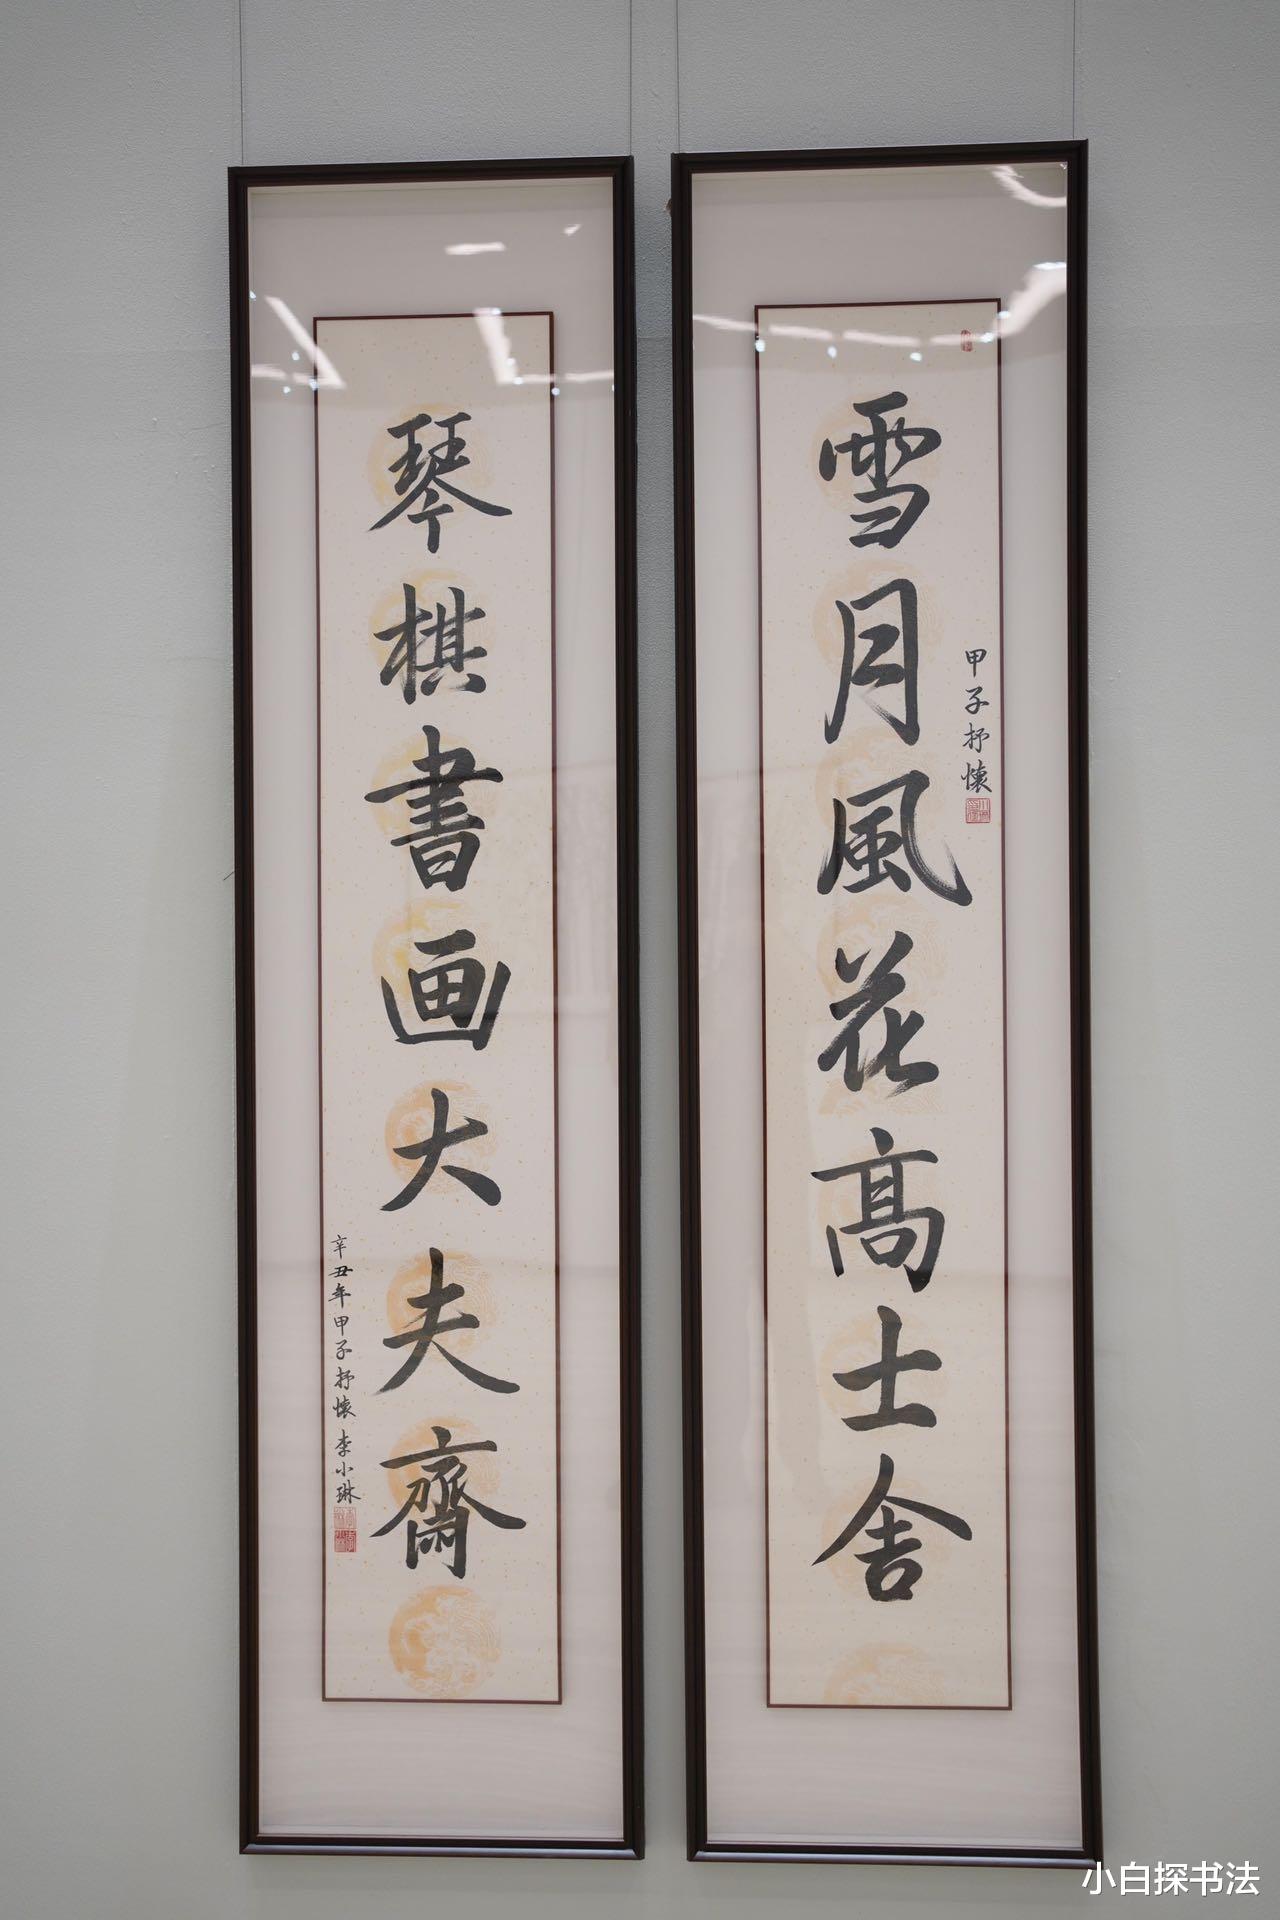 雪月風花高士舍
甲子抒懷
琴棋書画大夫齋
辛丑年甲子抒懷李小琳
小白探书法